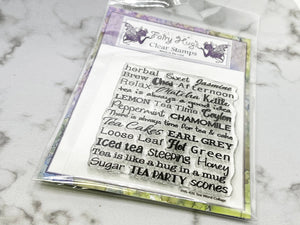 Fairy Hugs
Clear Stamps
herbal Sweet Jasmine
Brew Chai Afternoon
Relax Matcha Kettle
tea is always a good idea
LEMON Tea Time Ceylon
Peppermint CHAMOMILE
There is always time for tea & cake
Tea Cakes EARL GREY
Loose Leaf Hot Green
Iced tea steeping Honey
Tea is like a hug in a mug
Sugar TEA PARTY SCONES